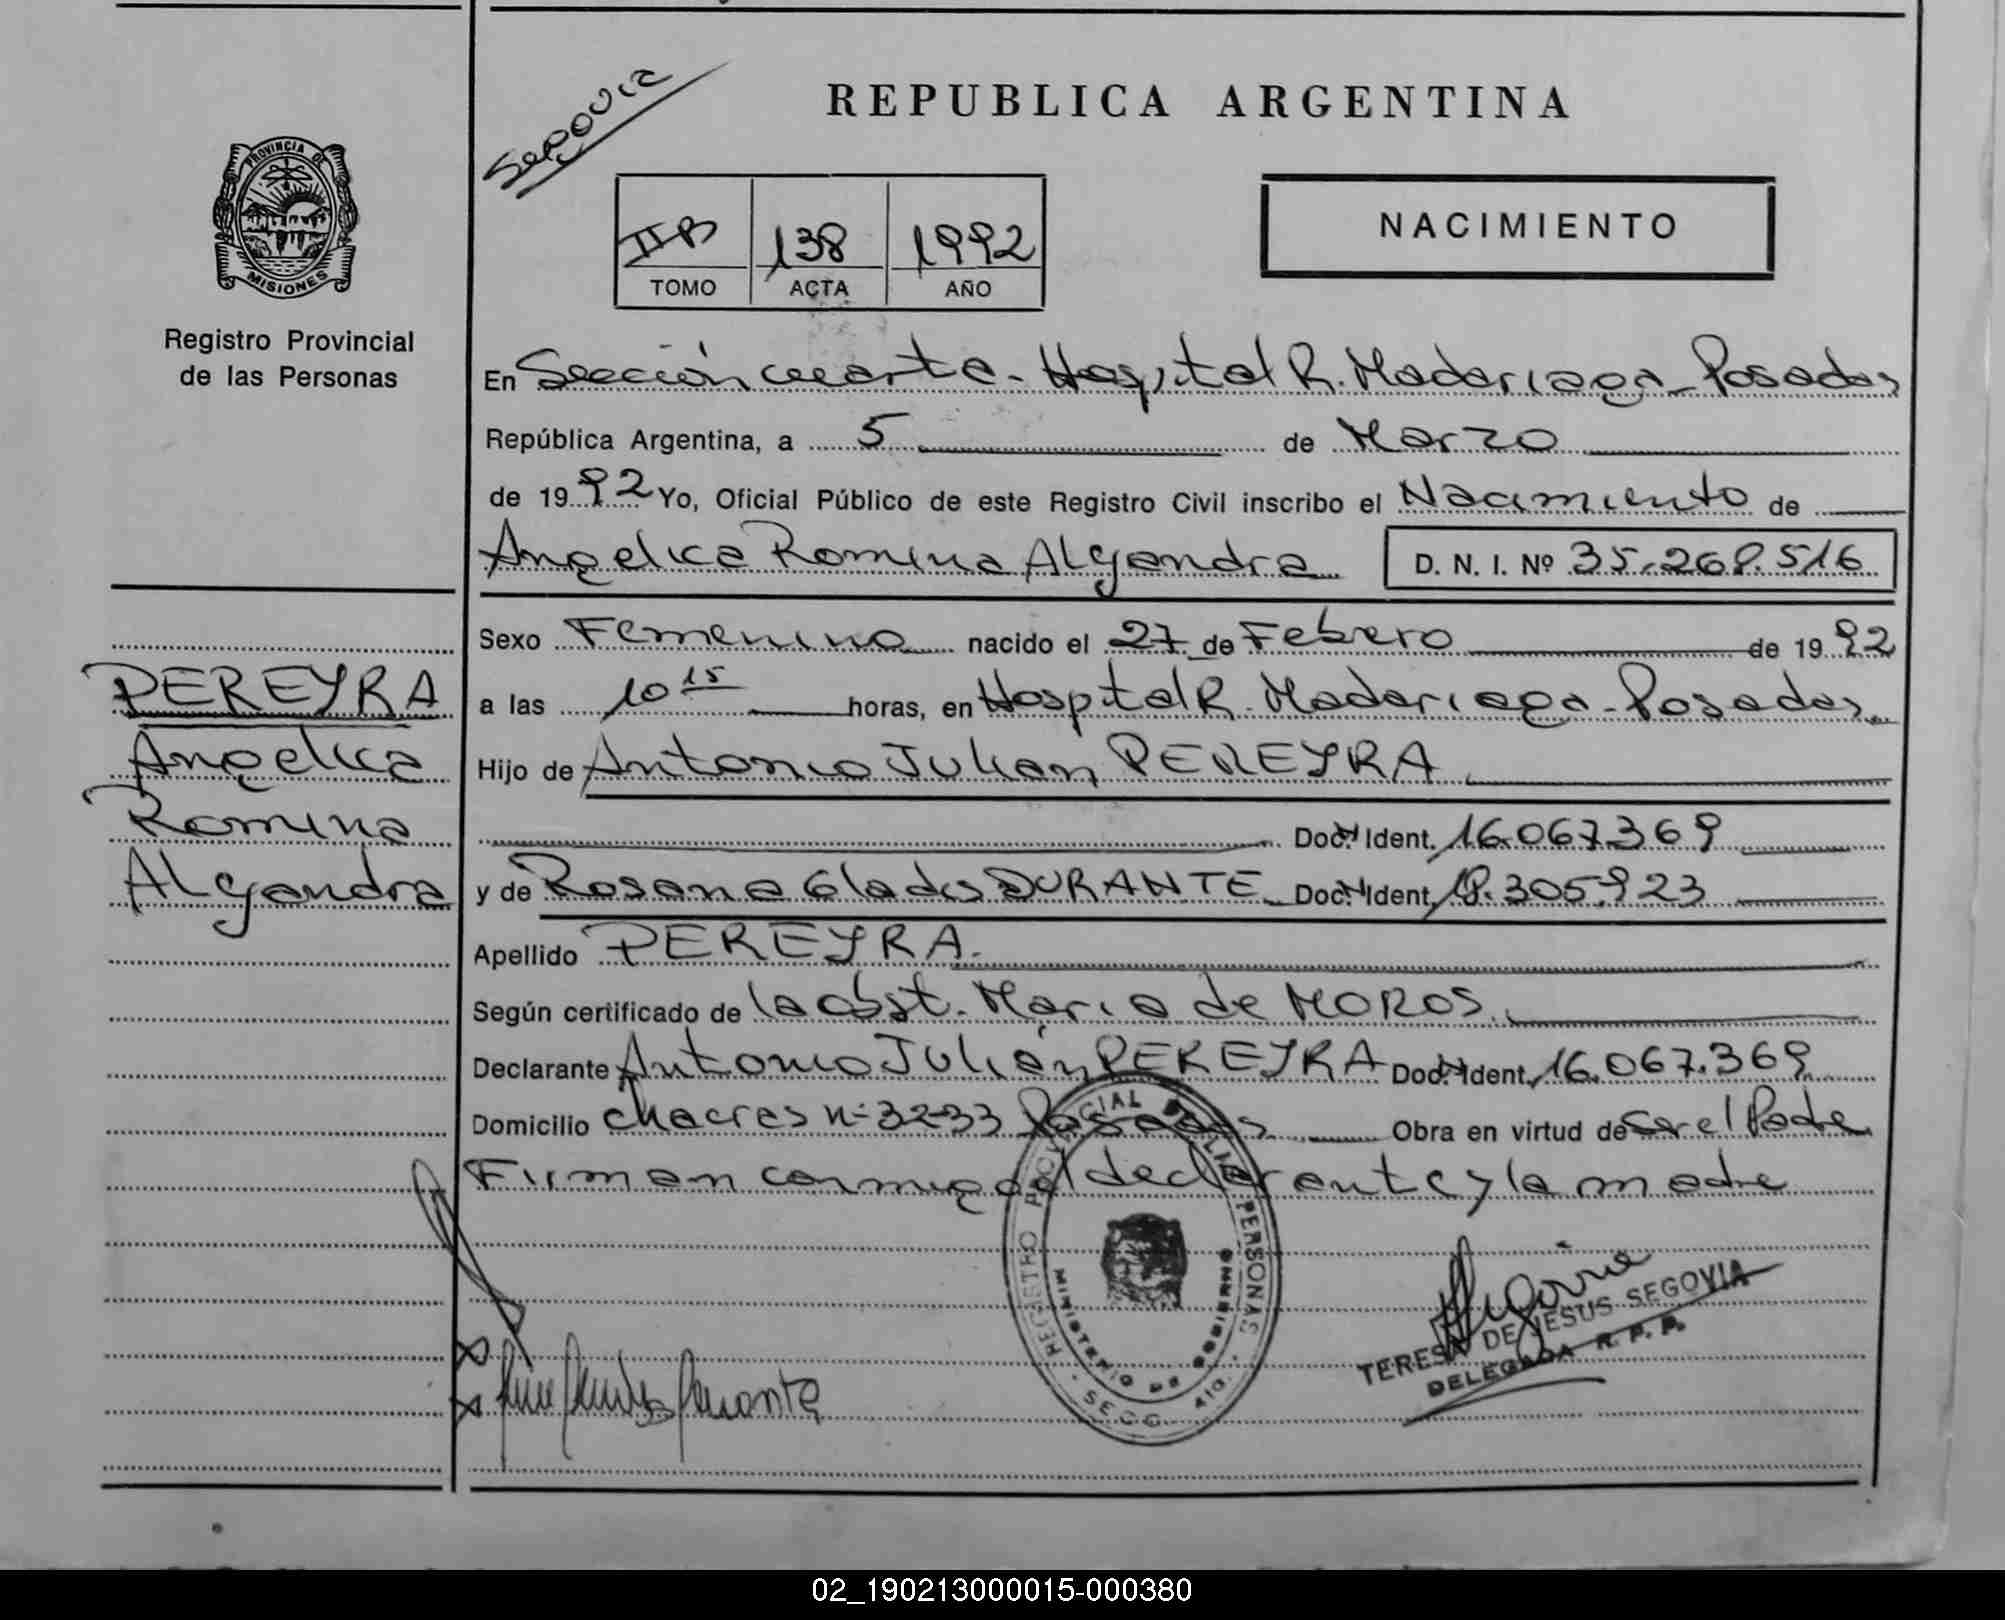 Segovia
REPUBLICA ARGENTINA
PROVINCIA DE
MISIONES
Registro Provincial
de las Personas
IIB 138 1992
TOMO ACTA AÑO
NACIMIENTO
En Sección cuarta - Hospital R. Madariaga - Posadas
República Argentina, a 5 de Marzo
de 1992 Yo, Oficial Público de este Registro Civil inscribo el Nacimiento de
Angelica Romina Alejandra D. N. I. Nº 35.268.516
Sexo Femenino nacido el 27 de Febrero de 1992
PEREYRA
Angelica
Romina
Alejandra
a las 10 15 horas, en Hospital R. Madariaga - Posadas
Hijo de Antonio Julian PEREYRA
Doc. Ident. 16.067.369
y de Rosana Glades DURANTE Doc. Ident. 18.305.923
Apellido PEREYRA.
Según certificado de la obst. Maria de MOROS
Declarante Antonio Julián PEREYRA Doc. Ident. 16.067.369
Domicilio chacras nº 32-33 Posadas Obra en virtud de ser el Padre
Firman conmigo el declarante y la madre
REGISTRO PROVINCIAL DE LAS PERSONAS
MINISTERIO DE GOBIERNO
SECC. 4ta.
Segovia
TERESA DE JESUS SEGOVIA
DELEGADA R. P. P.
Durante
02_190213000015-000380